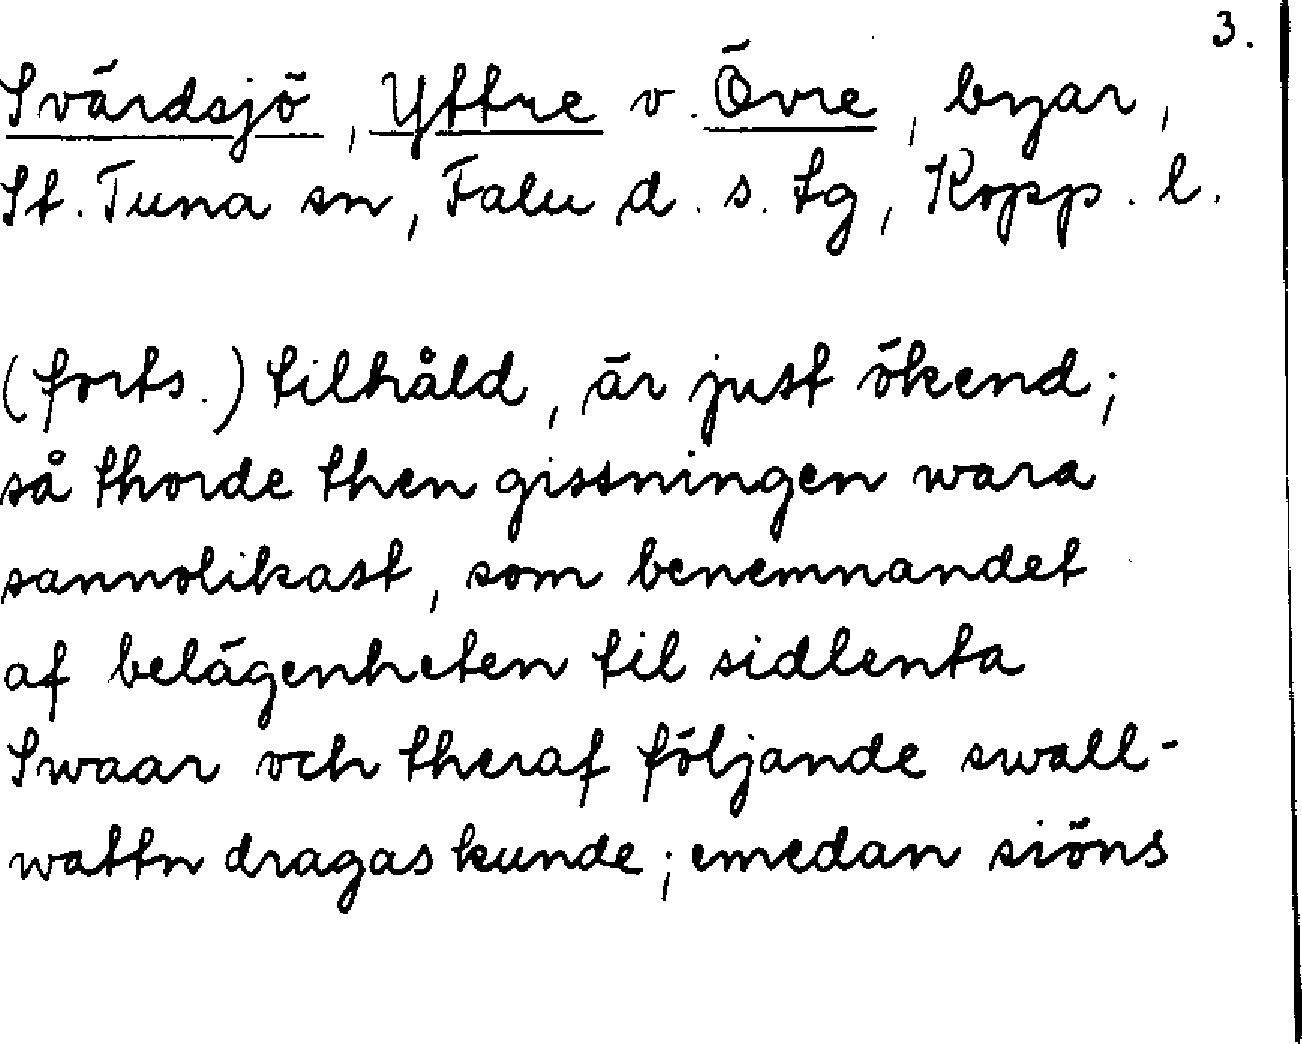 3.
Svärdsjö, Yttre o. Övre, byar,
St. Tuna sn, Falu d. s. tg, Kopp. l.
(forts.) tilhåld, är just ökend;
så thorde then gissningen wara
sannolikast, som benemnandet
af belägenheten til sidlenta
Swaar och theraf följande swall-
wattn dragas kunde; emedan siöns